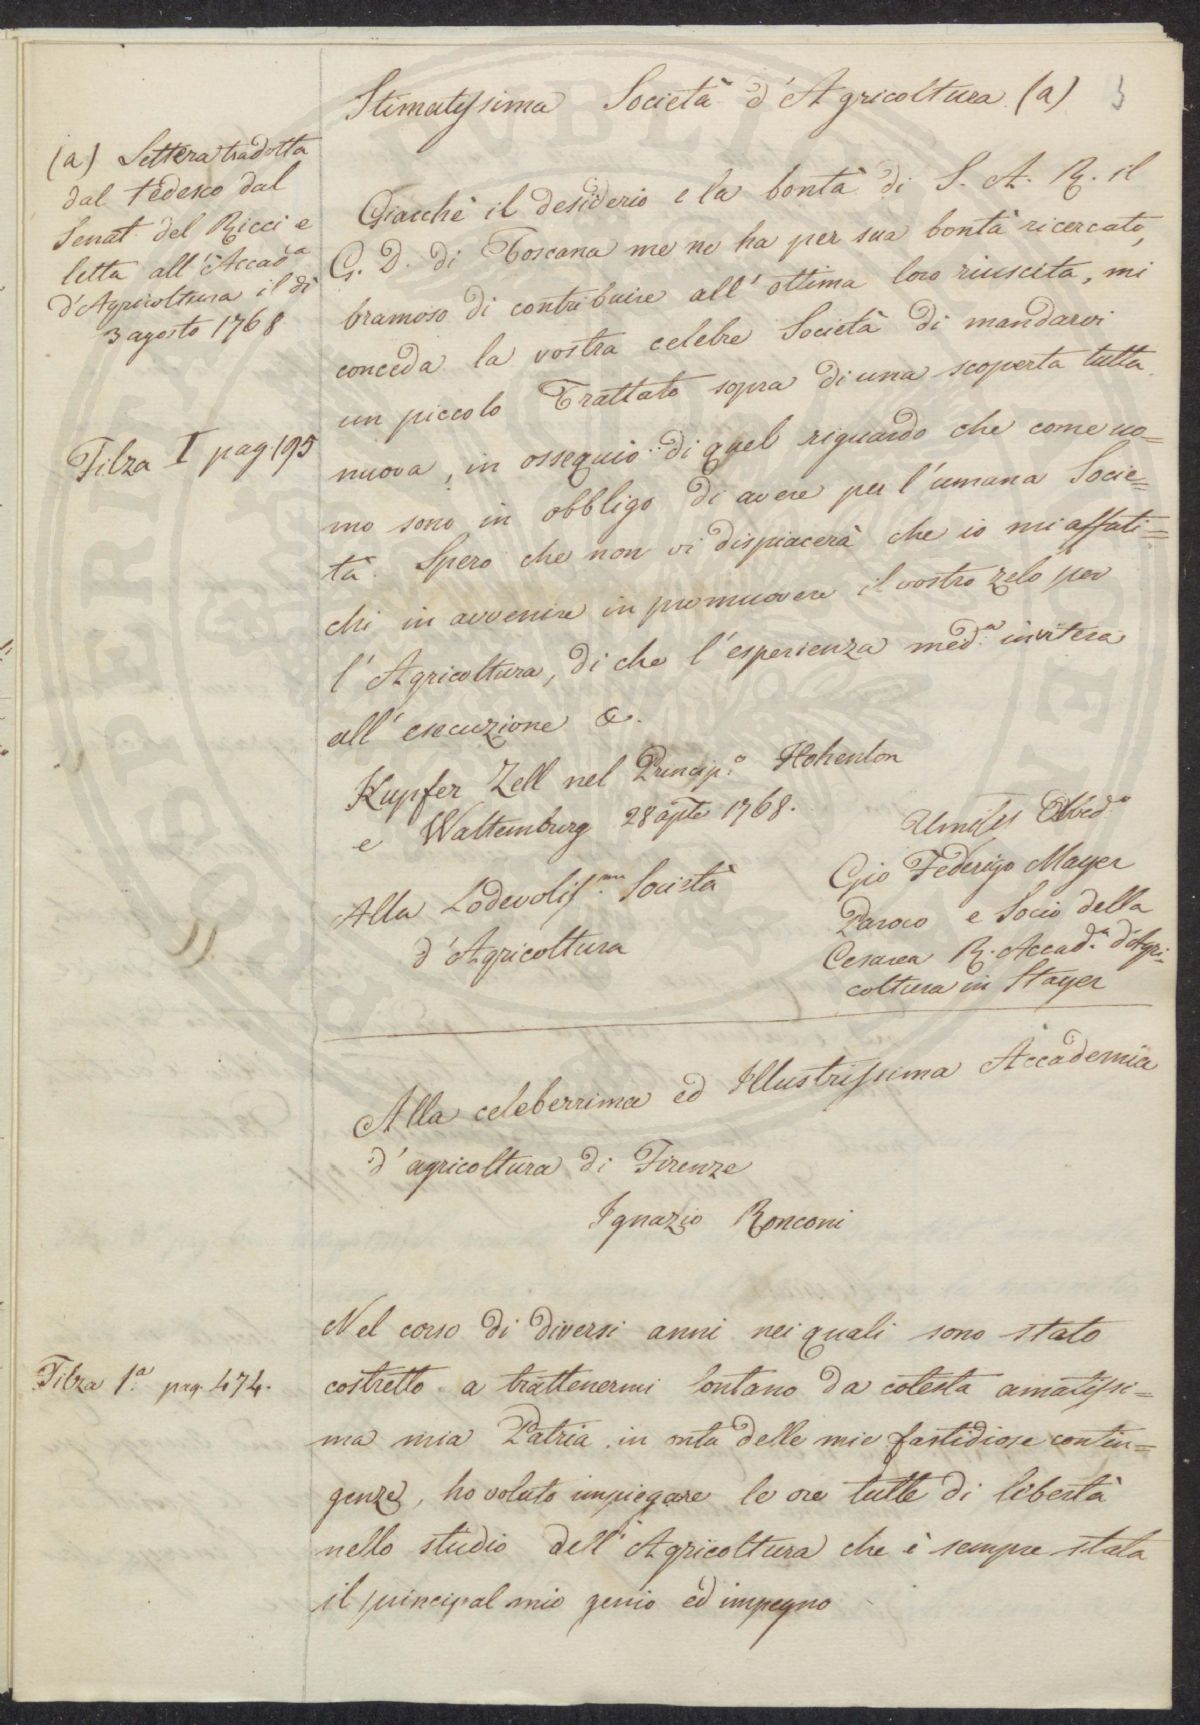 Stimatissima Società d'Agricoltura (a)
3
(a) Lettera tradotta
dal tedesco dal
Senat. del Ricci e
letta all'Accad.a
d'Agricoltura il dì
3 agosto 1768
Giacchè il desiderio e la bontà di S. A. R. il
G. D. di Toscana me ne ha per sua bontà ricercato,
bramoso di contribuire all'ottima loro riuscita, mi
conceda la vostra celebre Società di mandarvi
un piccolo Trattato sopra di una scoperta tutta
nuova, in ossequio di quel riguardo che come uo=
mo sono in obbligo di avere per l'umana Socie=
tà. Spero che non vi dispiacerà che io mi affati=
chi in avvenire in promuovere il vostro zelo per
l'Agricoltura, di che l'esperienza med.a inviterà
all'esecuzione &.
Filza I pag 195
Kupfer Zell nel Princip.o Hohenlon
e Waltemburg 28 aple 1768.
Alla Lodevoliss.ma Società
d'Agricoltura
Umiliss Obbed.o
Gio Federigo Mayer
Paroco e Socio della
Cesarea R. Accad.a d'Agri-
coltura in Stayer
Alla celeberrima ed Illustrissima Accademia
d'agricoltura di Firenze
Ignazio Ronconi
Filza 1.a pag. 474.
Nel corso di diversi anni nei quali sono stato
costretto a trattenermi lontano da cotesta amatissi=
ma mia Patria in onta delle mie fastidiose contin=
genze, ho voluto impiegare le ore tutte di libertà
nello studio dell'Agricoltura che è sempre stata
il principal mio genio ed impegno